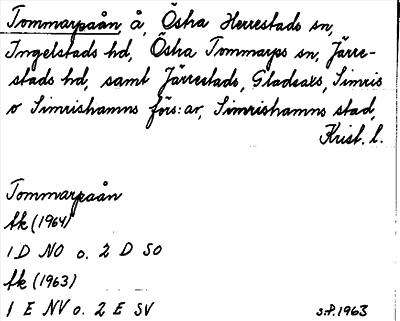 Tommarpaån å, Östra Herrestads sn,
Ingelstads hd, Östra Tommarps sn, Järre-
stads hd, samt Järrestads, Gladsaxs, Simris
o Simrishamns förs:ar, Simrishamns stad,
Krist. l.
Tommarpaån
fk (1964)
1 D NO o. 2 D SO
fk (1963)
1 E NV o. 2 E SV
S.P. 1963